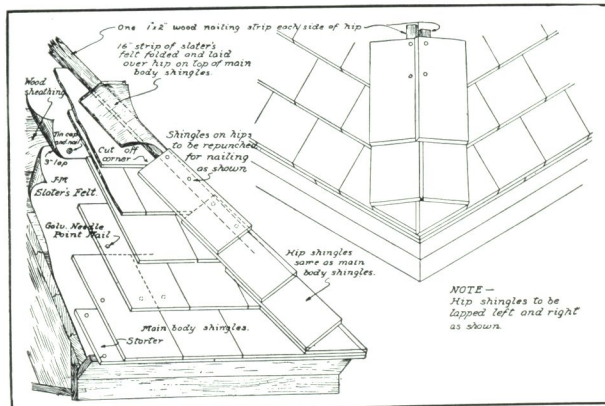 One 1"x2" wood nailing strip each side of hip
16" strip of slater's
felt folded and laid
over hip on top of main
body shingles.
Wood
sheathing
Tin cap
and nail
3" lap
J-M
Slater's Felt.
Cut off
corner
Shingles on hips
to be repunched
for nailing
as shown
Galv. Needle
Point Nail
Hip shingles
same as main
body shingles.
Main body shingles.
Starter
NOTE —
Hip shingles to be
lapped left and right
as shown.